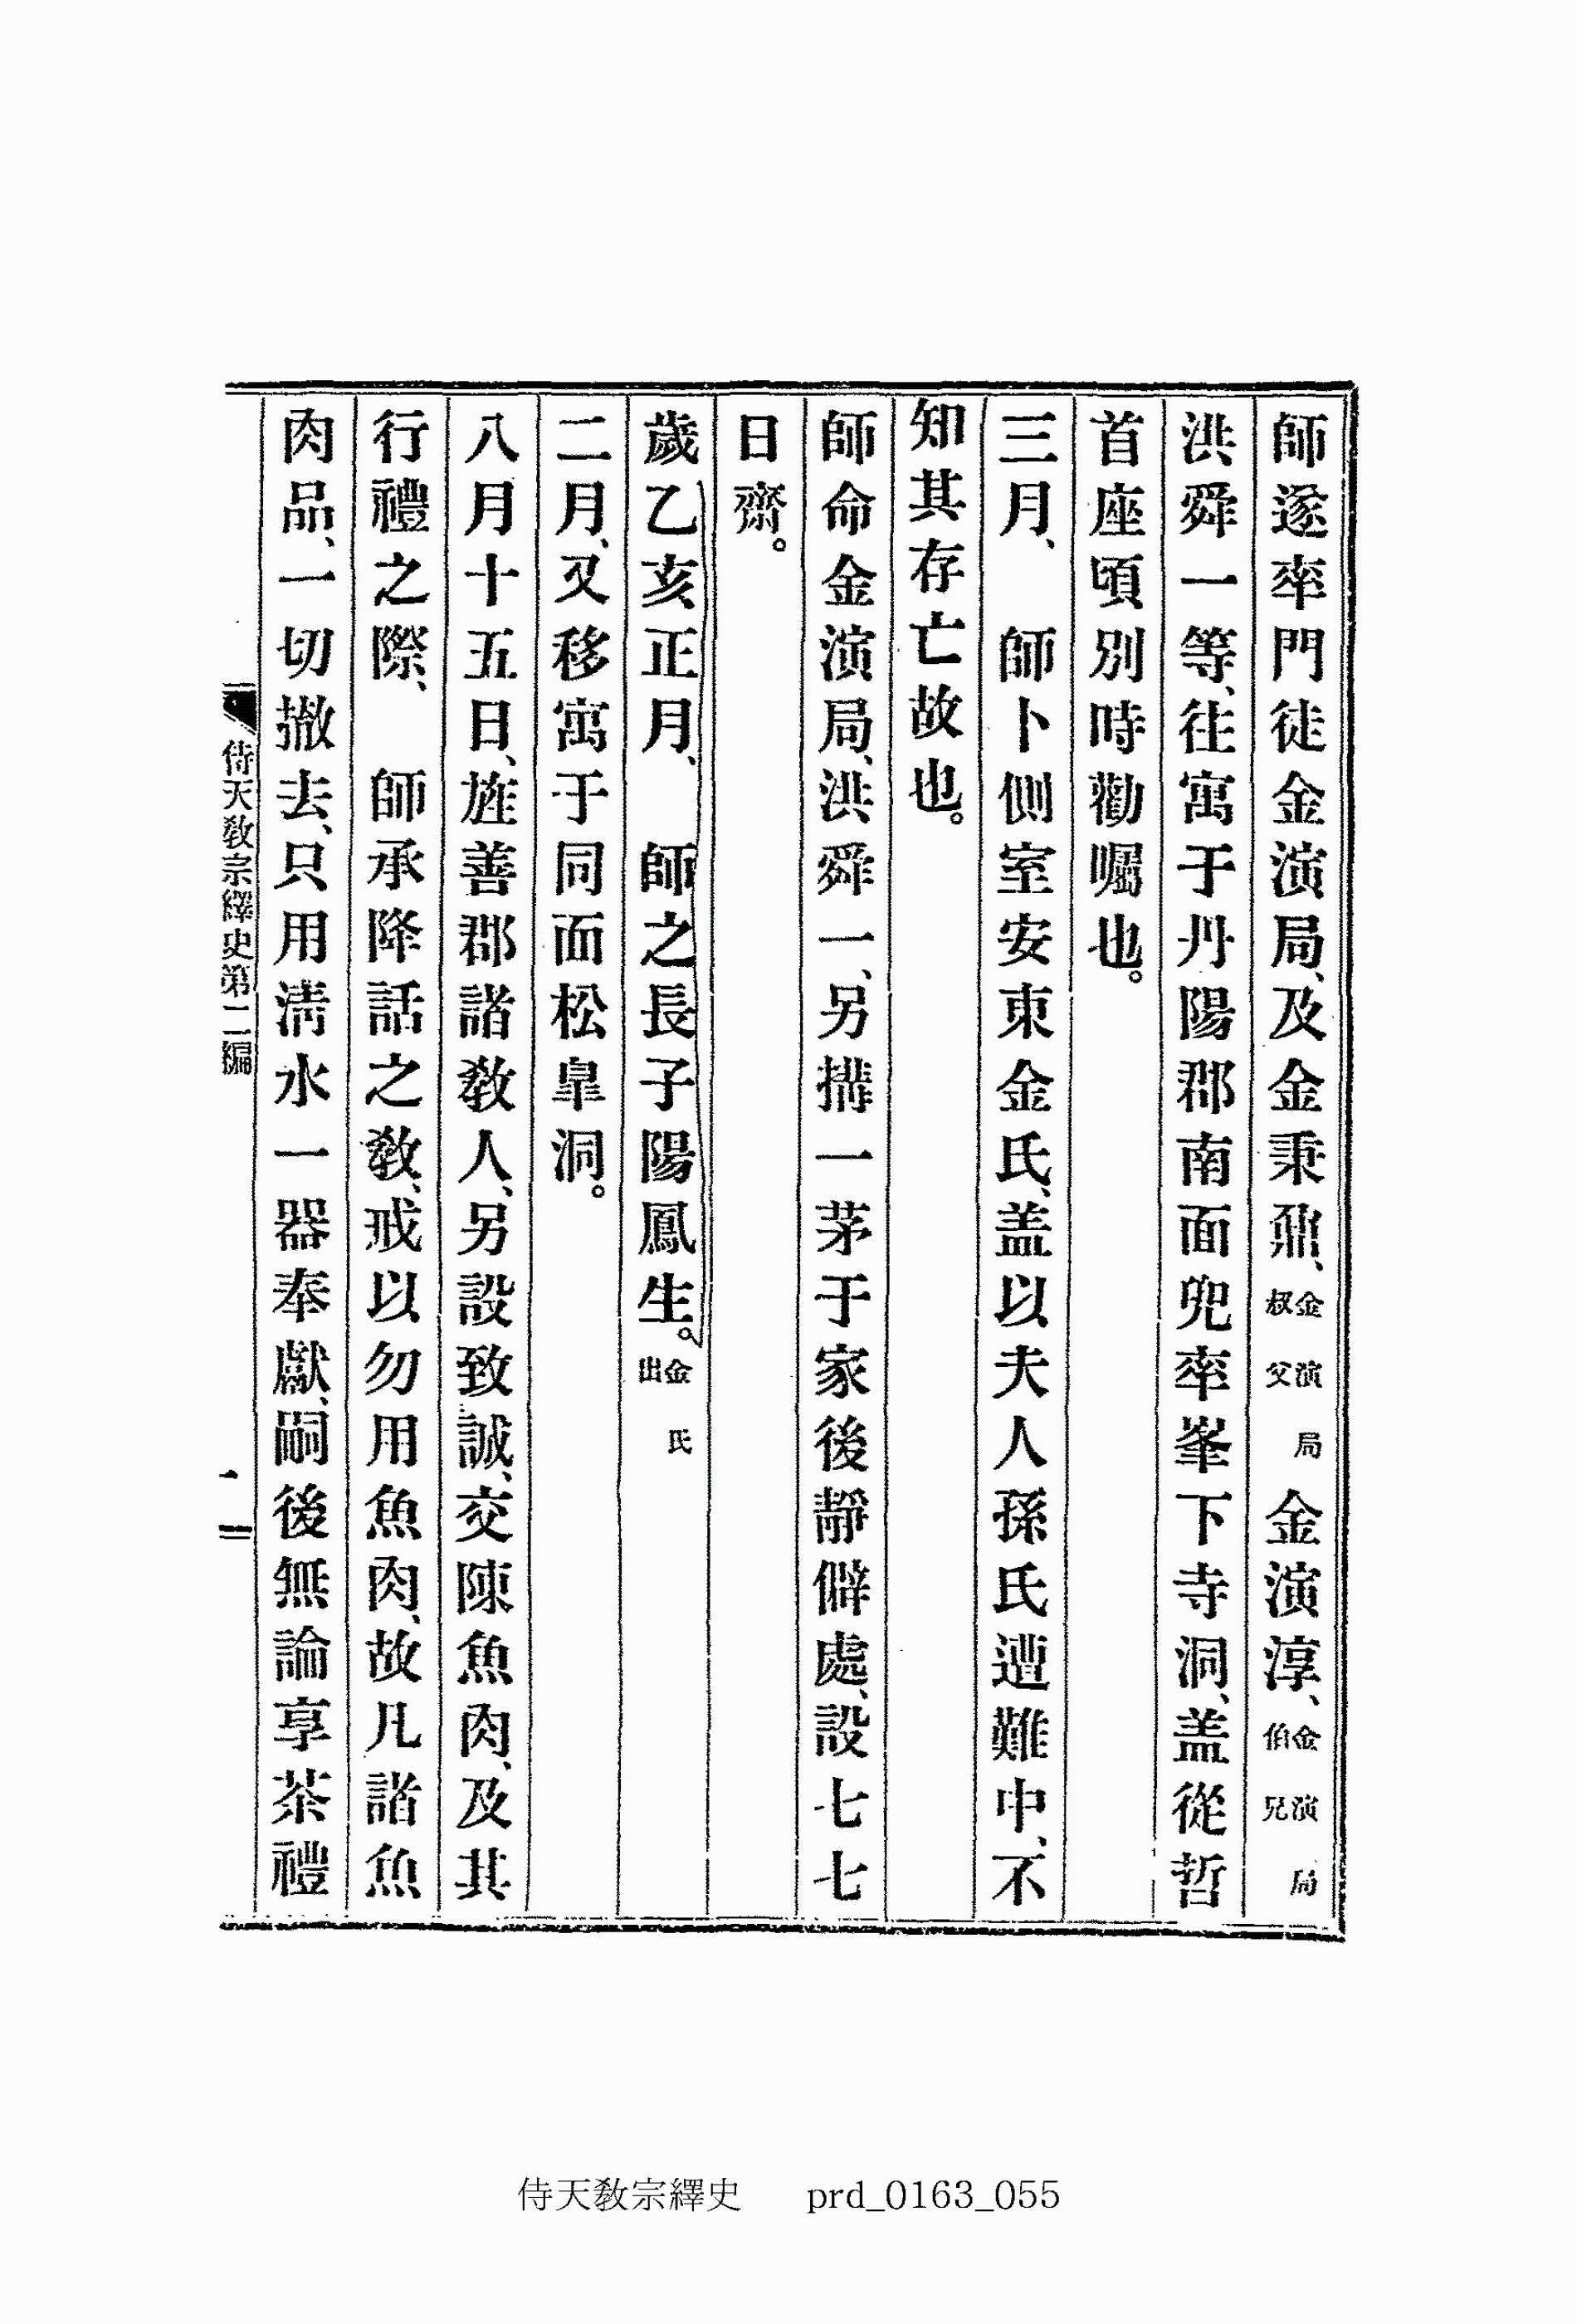 師遂率門徒金演局、及金秉鼐、金演局叔父金演淳、金演局伯兄
洪舜一等、往寓于丹陽郡南面兜率峯下寺洞、盖從哲
首座頃別時勸囑也。
三月、　師卜側室安東金氏、盖以夫人孫氏遭難中、不
知其存亡故也。
師命金演局、洪舜一、另搆一茅于家後靜僻處、設七七
日齋。
歲乙亥正月、　師之長子陽鳳生。金氏出
二月、又移寓于同面松皐洞。
八月十五日、旌善郡諸敎人、另設致誠、交陳魚肉、及其
行禮之際、　師承降話之敎、戒以勿用魚肉、故凡諸魚
肉品、一切撤去、只用淸水一器奉獻、嗣後無論享茶禮
侍天敎宗繹史第二編
一二
侍天敎宗繹史 prd_0163_055